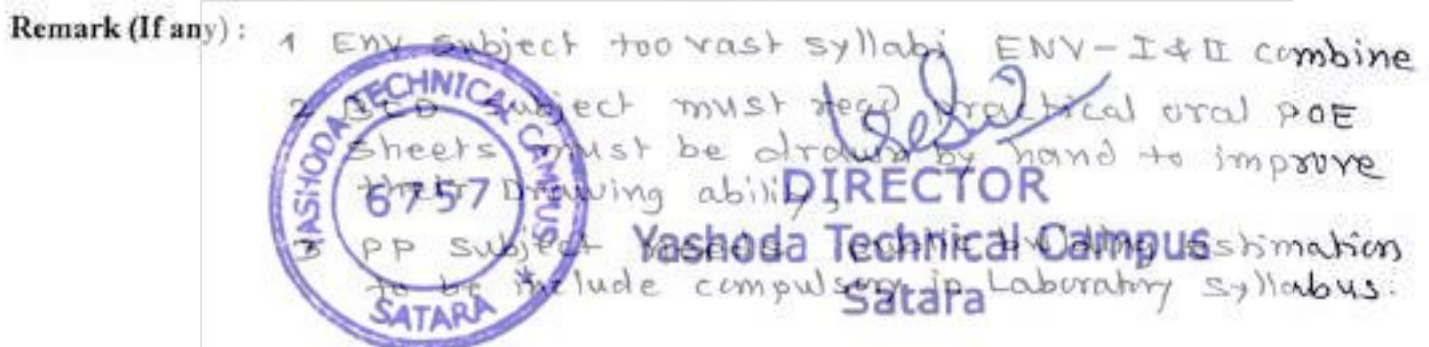 Remark (If any) :
1 Env subject too vast syllabi ENV-I & II combine
2 subject must practical oral POE
sheets must be drawn by hand to improve
their Drawing ability,
3 PP subject public building estimation
to be include compulsory in Laboratry syllabus.
YASHODA TECHNICAL CAMPUS
6757
SATARA
DIRECTOR
Yashoda Technical Campus
Satara